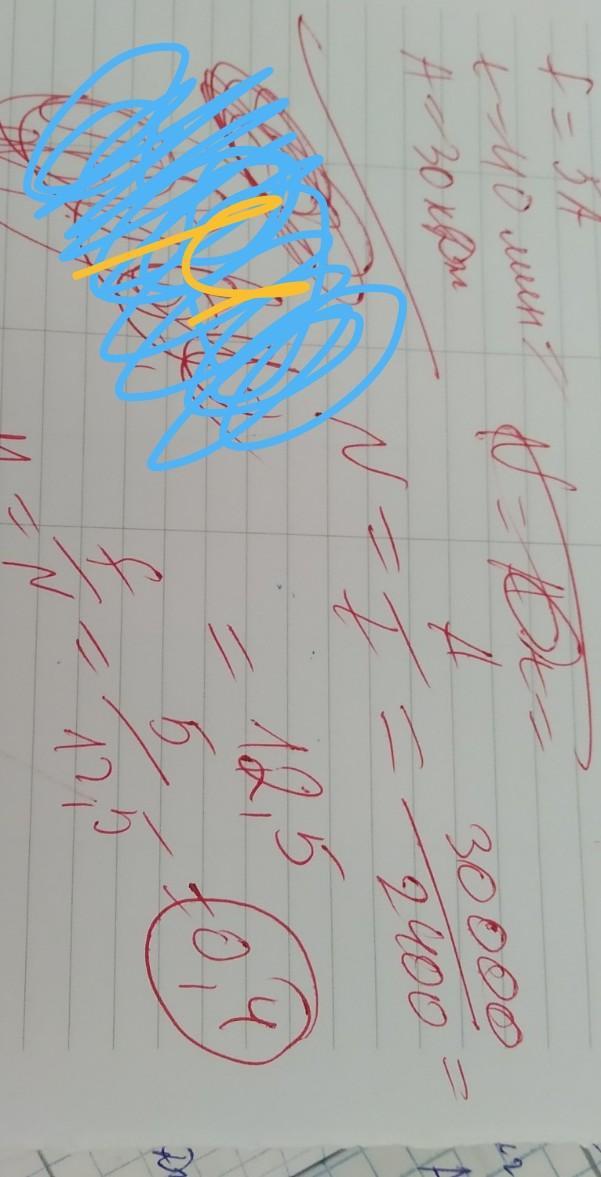 I = 5A
t = 40 мин
A = 30 кДж
N = A/t = 30000/2400 =
= 12,5
U = I/N = 5/12,5 = 0,4